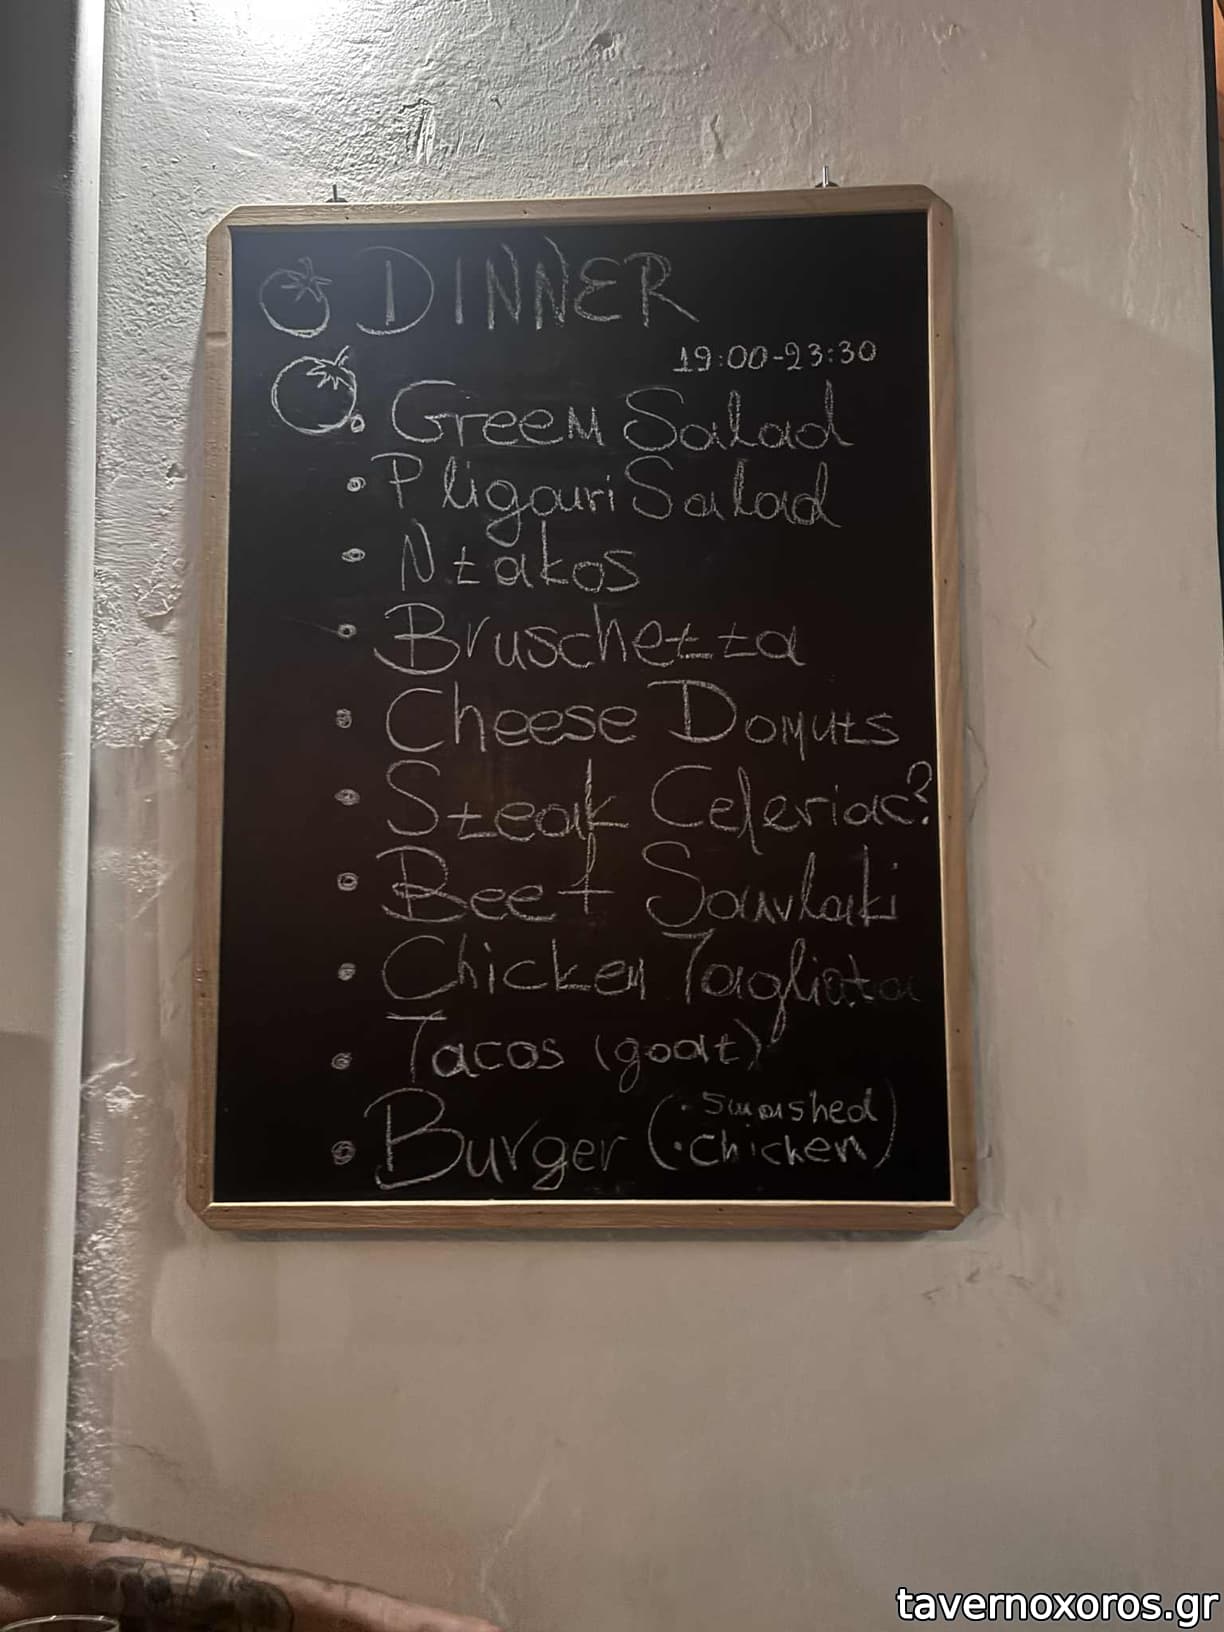 DINNER
19:00-23:30
Green Salad
Pligouri Salad
Ntakos
Bruschetta
Cheese Donuts
Steak Celeriac?
Beef Souvlaki
Chicken Tagliata
Tacos (goat)
Burger (• Smashed
• Chicken)
tavernoxoros.gr